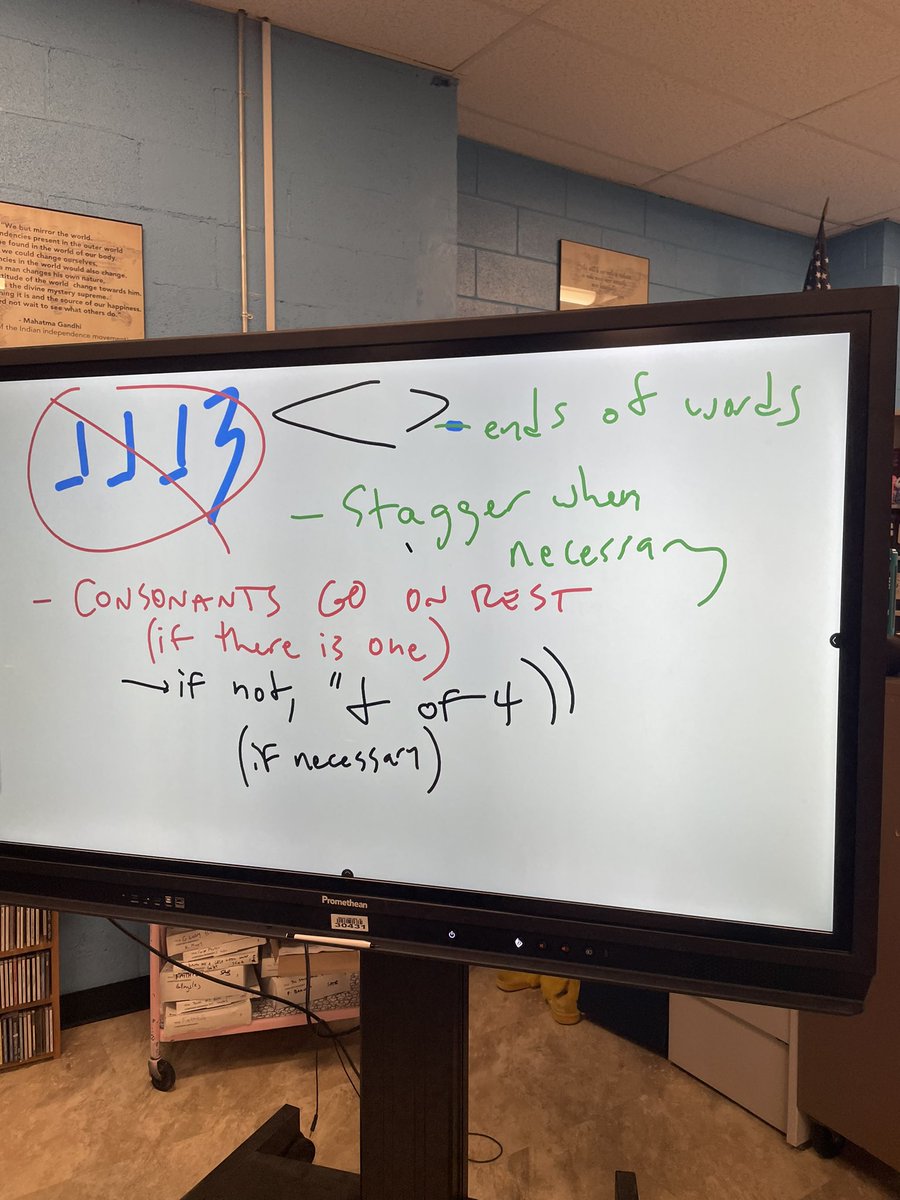 "We but mirror the world.
ndencies present in the outer world
e found in the world of our body.
we could change ourselves,
ncies in the world would also change.
a man changes his own nature,
titude of the world change towards him.
the divine mystery supreme.
hing it is and the source of our happiness.
d not wait to see what others do."
- Mahatma Gandhi
of the Indian independence movement
- ends of words
- Stagger when
necessary
- CONSONANTS GO ON REST
(if there is one)
→ if not, "t of 4))
(if necessary)
Promethean
30431